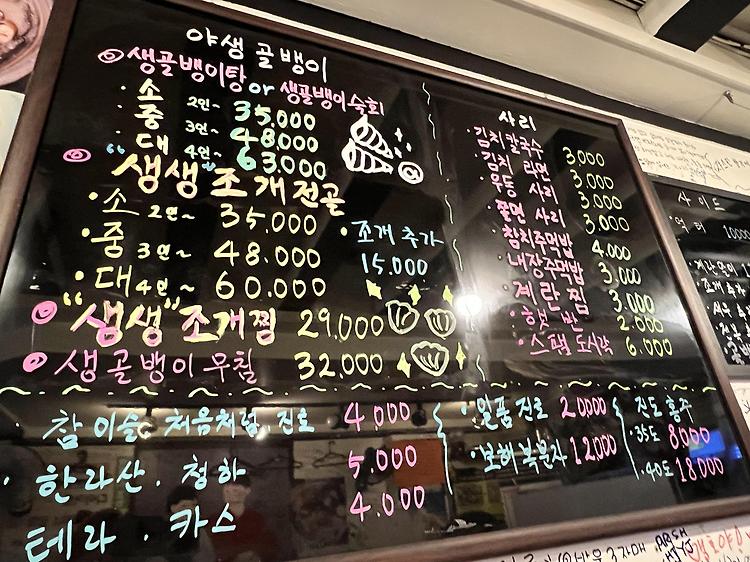 야생 골뱅이
생골뱅이탕 or 생골뱅이숙회
· 소 2인~ 35.000
· 중 3인~ 48.000
· 대 4인~ 63.000
"생생"조개전골
· 소 2인~ 35.000
· 중 3인~ 48.000
· 대 4인~ 60.000
· 조개 추가
15.000
"생생"조개찜 29.000
생골뱅이무침 32.000
사리
· 김치칼국수 3,000
· 김치 라면 3,000
· 우동 사리 3,000
· 쫄면 사리 3,000
· 참치주먹밥 4.000
· 내장주먹밥 3,000
· 계란찜 3.000
· 햇반 2.000
· 스팸 도시락 6.000
· 참이슬. 처음처럼. 진로 4.000
· 한라산 . 청하 5.000
테라 . 카스 4.000
· 일품진로 20000
· 보해복분자 12,000
진도 홍주
· 35도 8000
· 40도 18000
사이드